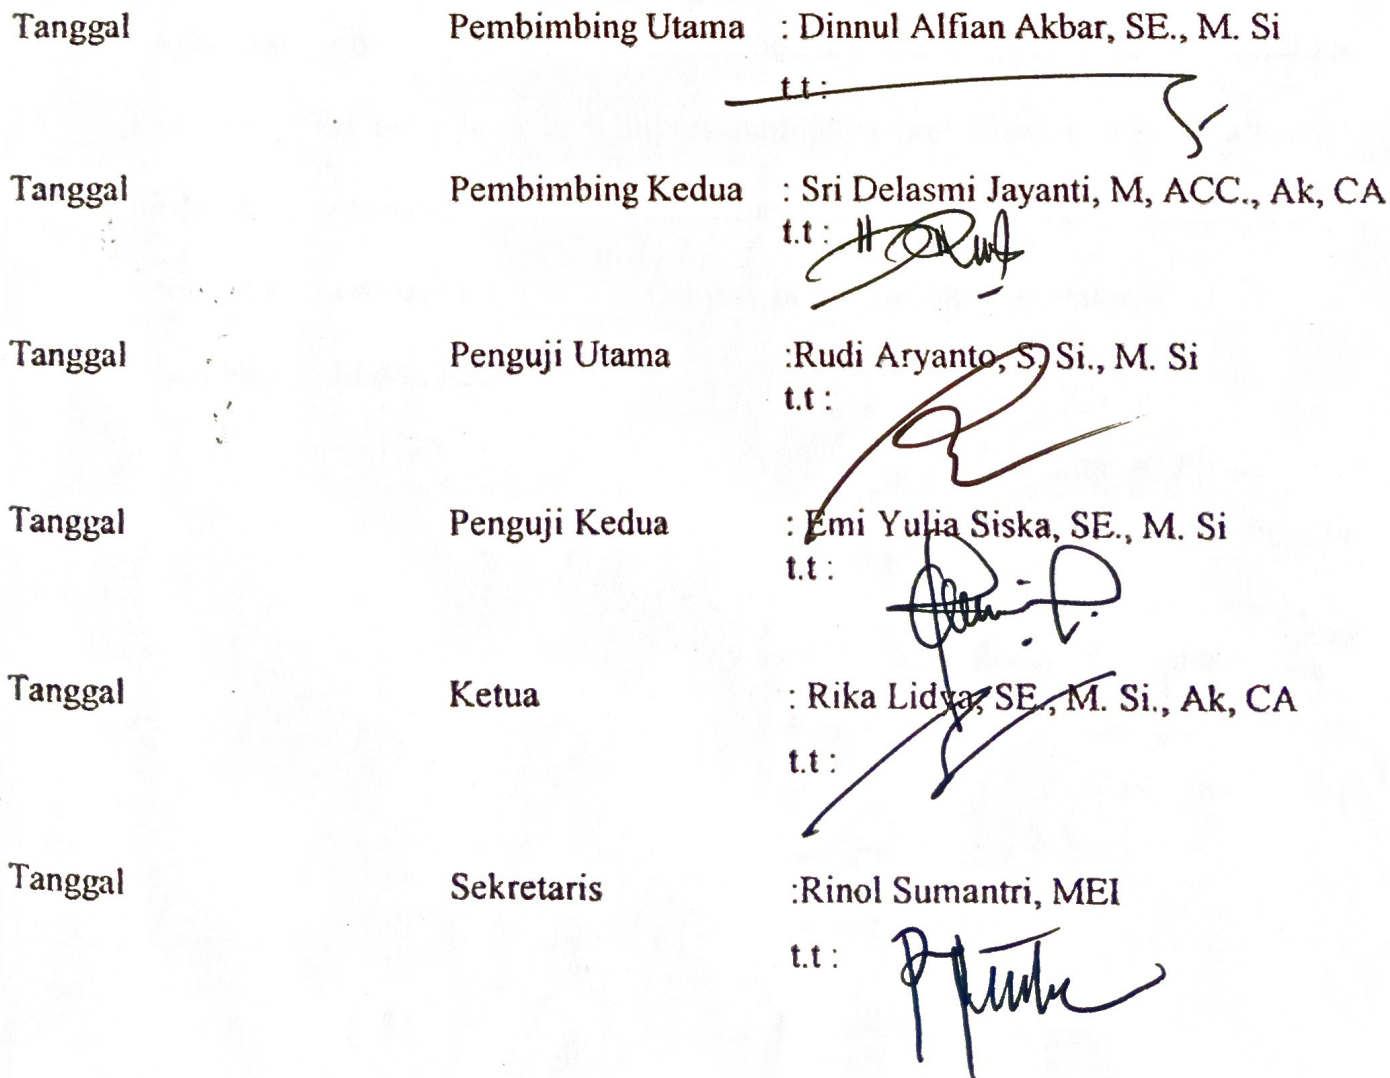 Tanggal Pembimbing Utama : Dinnul Alfian Akbar, SE., M. Si
t.t :
Tanggal Pembimbing Kedua : Sri Delasmi Jayanti, M, ACC., Ak, CA
t.t :
Tanggal Penguji Utama :Rudi Aryanto, S, Si., M. Si
t.t :
Tanggal Penguji Kedua : Emi Yulia Siska, SE., M. Si
t.t :
Tanggal Ketua : Rika Lidya, SE., M. Si., Ak, CA
t.t :
Tanggal Sekretaris :Rinol Sumantri, MEI
t.t :